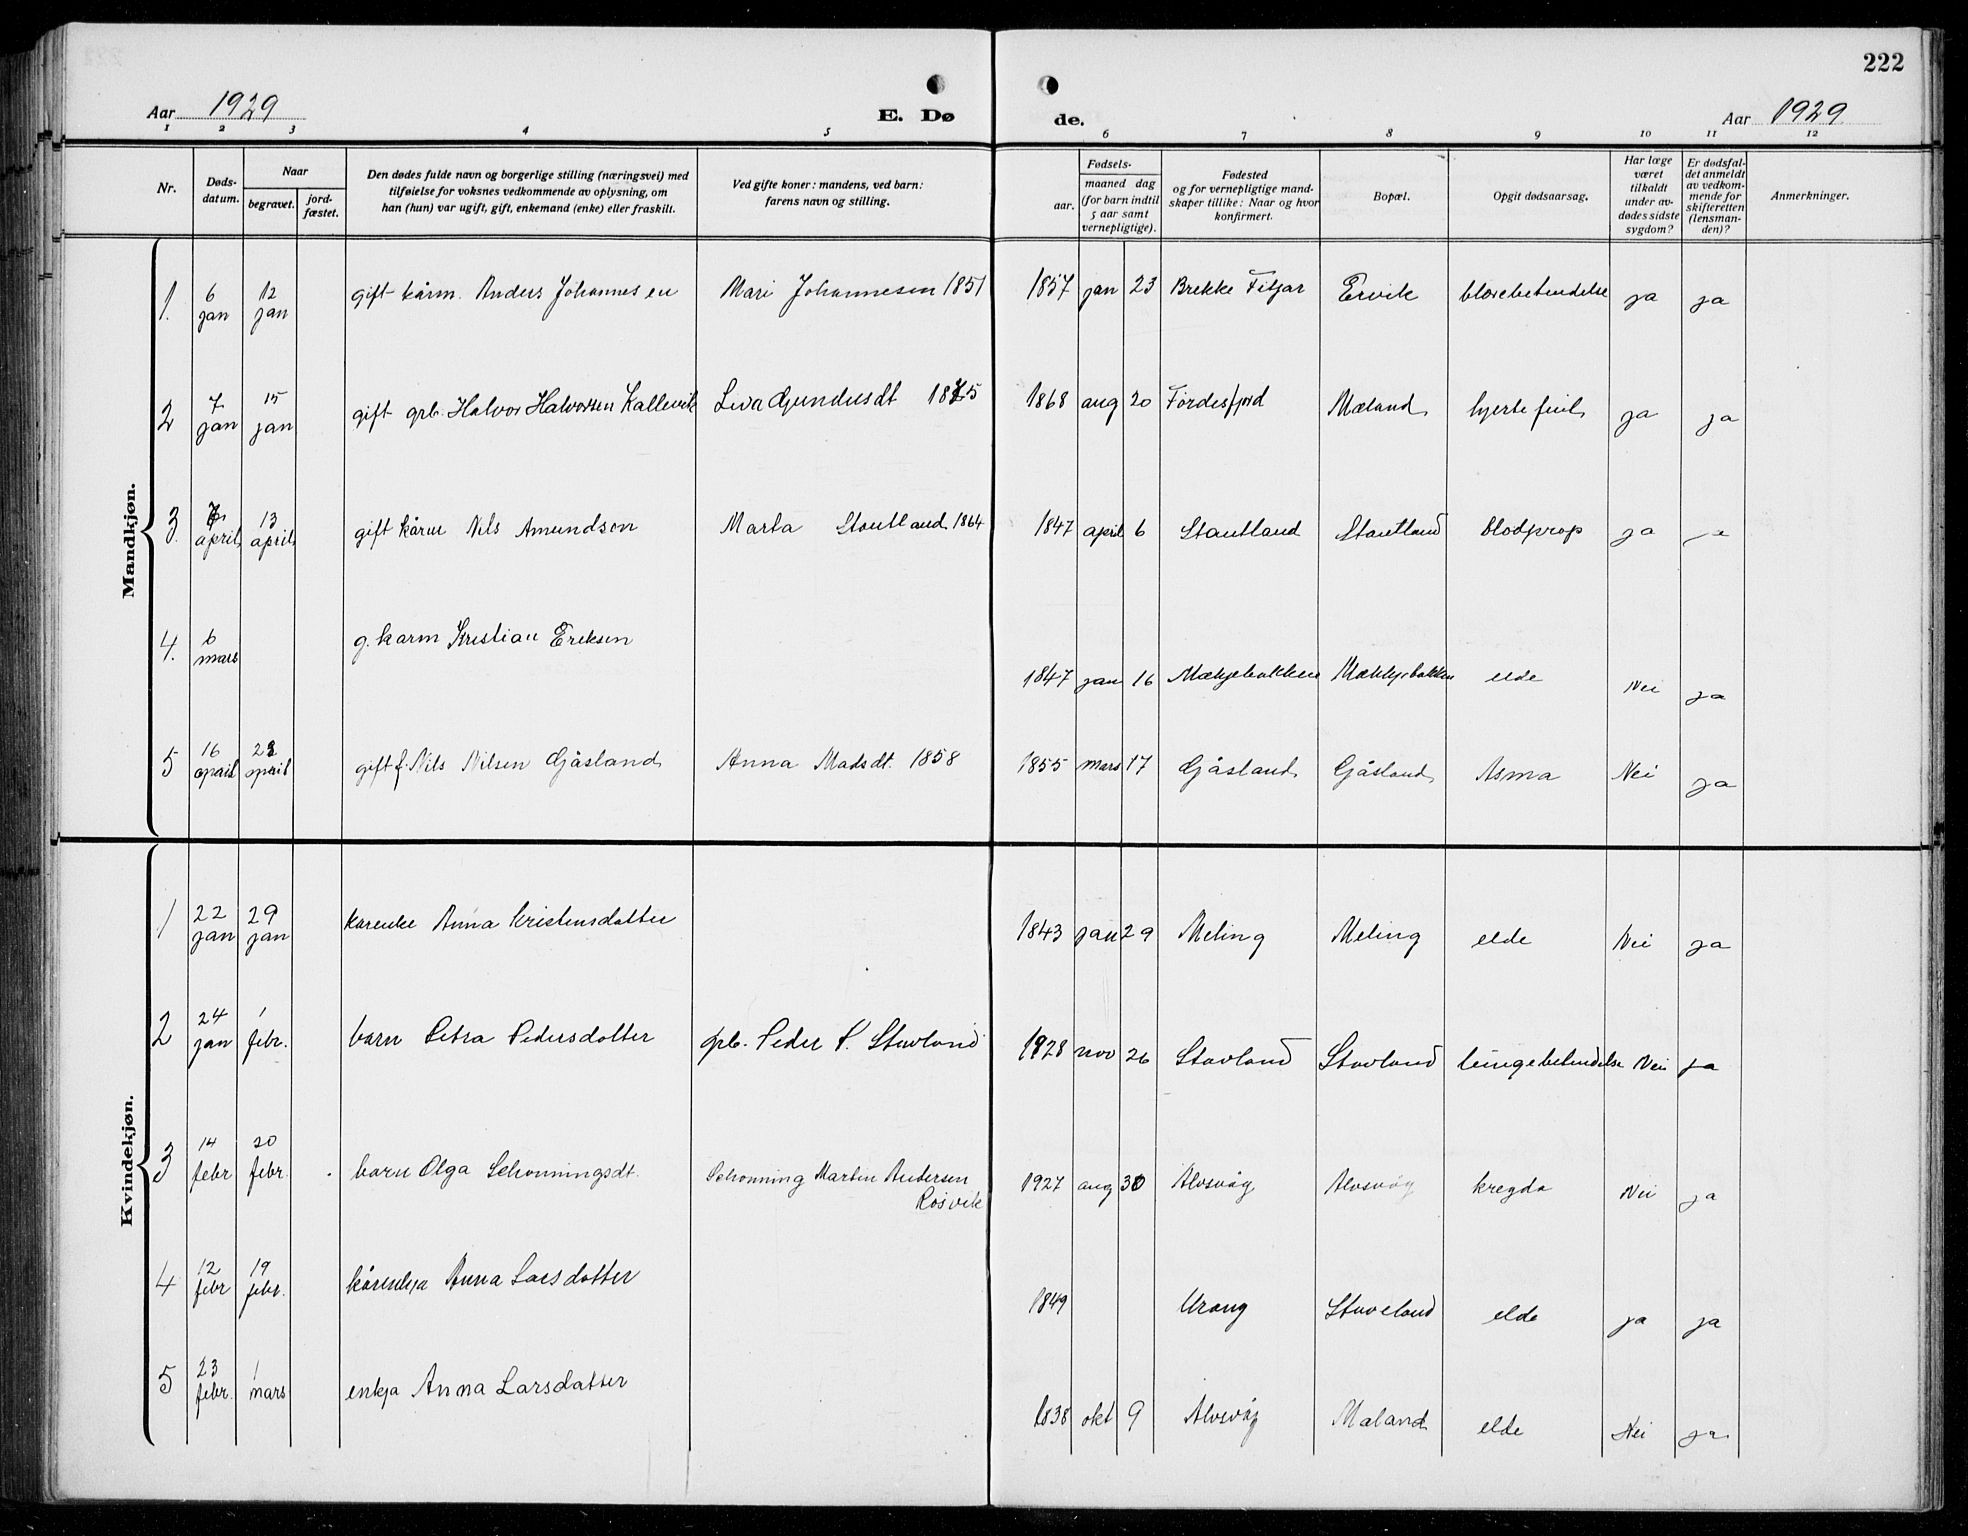 222
Aar 1929
E. Dø
de.
Aar 1929
1 2 3 4 5 6 7 8 9 10 11 12
Nr.
Døds-
datum.
Naar
begravet.
jord-
fæstet.
Den dødes fulde navn og borgerlige stilling (næringsvei) med
tilføielse for voksnes vedkommende av oplysning, om
han (hun) var ugift, gift, enkemand (enke) eller fraskilt.
Ved gifte koner: mandens, ved barn:
farens navn og stilling.
Fødsels-
aar.
maaned dag
(for barn indtil
5 aar samt
vernepligtige).
Fødested
og for vernepligtige mand-
skaper tillike: Naar og hvor
konfirmert.
Bopæl.
Opgit dødsaarsag.
Har læge
været
tilkaldt
under av-
dødes sidste
sygdom?
Er dødsfal-
det anmeldt
av vedkom-
mende for
skifteretten
(lensman-
den)?
Anmerkninger.
Mandkjøn.
1. 6 jan 12 jan gift kårm. Anders Johannesen Mari Johannesen 1851 1857 jan 23 Brekke Fitjar Ervik blærebetendelse ja ja
2 7 jan 15 jan gift grb. Halvor Halvorsen Kallevik Liva Gundusdt 1875 1868 aug 20 Førdesfjord Mæland hjertefeil ja ja
3. april 13 april gift kårm Nils Amundsen Marta Stautland 1864 1847 april 6 Stautland Stautland blodprop ja ja
4. 6 mars g. karm Kristian Eriksen 1847 jan 16 Mækjebakken Mækkjebakken elde Nei ja
5 16 april 23 april gift f. Nils Nilsen Gjåsland Anna Madsdt. 1858 1855 mars 17 Gjåsland Gjåsland Asma Nei ja
Kvindekjøn.
1 22 jan 29 jan karenke Anna Kristensdatter 1843 jan 29 Meling Meling elde Nei ja
2 24 jan 1 febr. barn Petra Pedersdatter grb. Peder P. Stavland 1928 nov 26 Stavland Stavland lungebetendelse Nei ja
3 14 febr 20 febr. barn Olga Schonningsdt. Schonning Martin Andersen
Rosvik 1927 aug 30 Alvsvåg Alvsvåg kregda Nei ja
4 12 febr 19 febr. kårenkja Anna Larsdatter 1849 Urang Staveland elde ja ja
5 23 febr. 1 mars enkja Anna Larsdatter 1838 okt 9 Alvsvåg Maland elde Nei ja